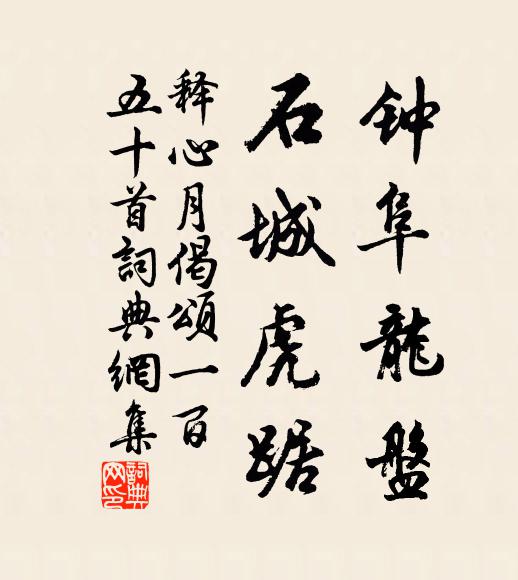 钟阜龍盤
石城虎踞
释心月偈頌一百
五十首詞典網集
詞典
网印